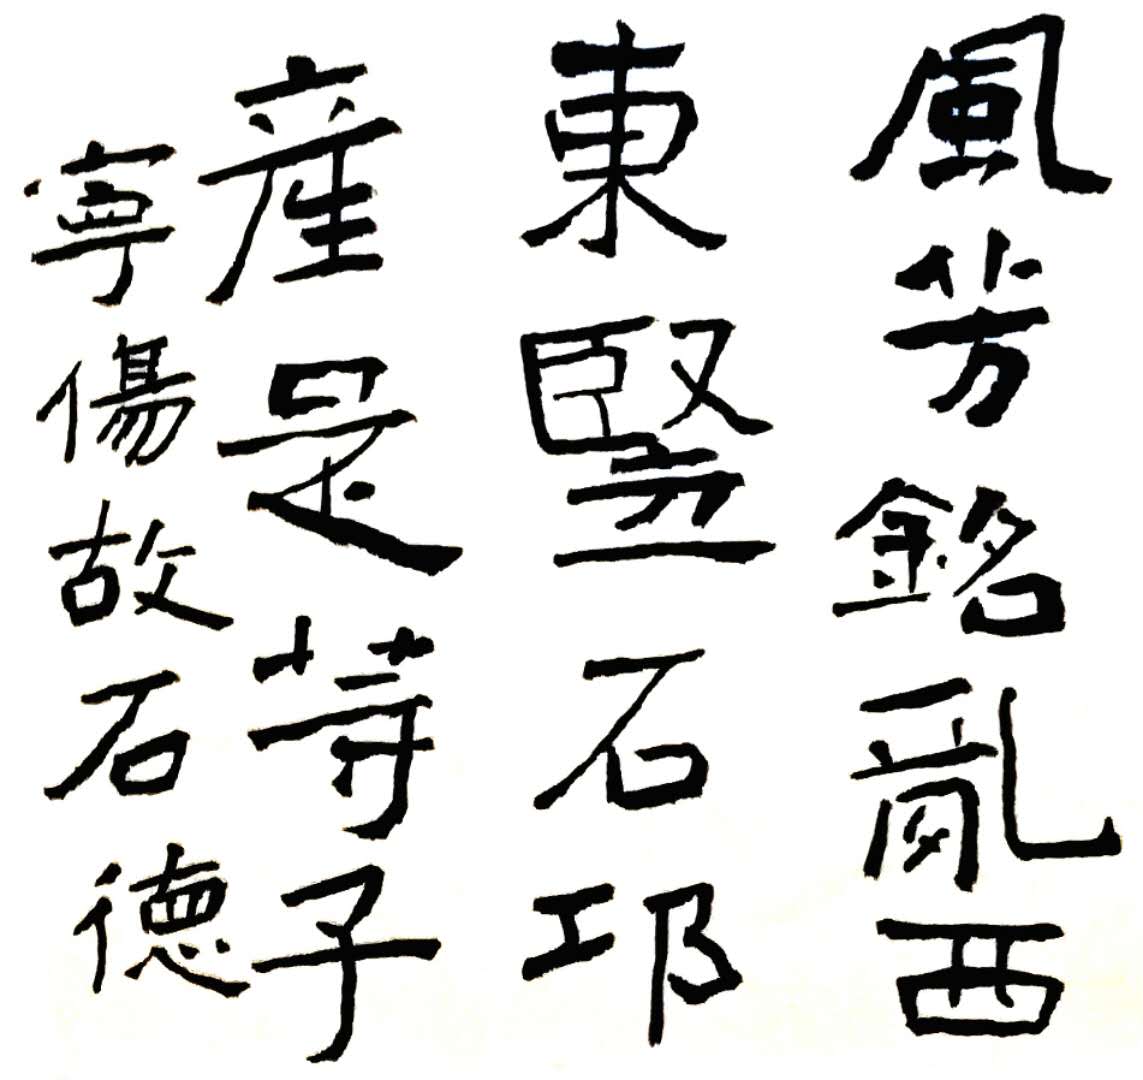 風芳銘亂西
東竪石邛
産是等子
寧傷故石德